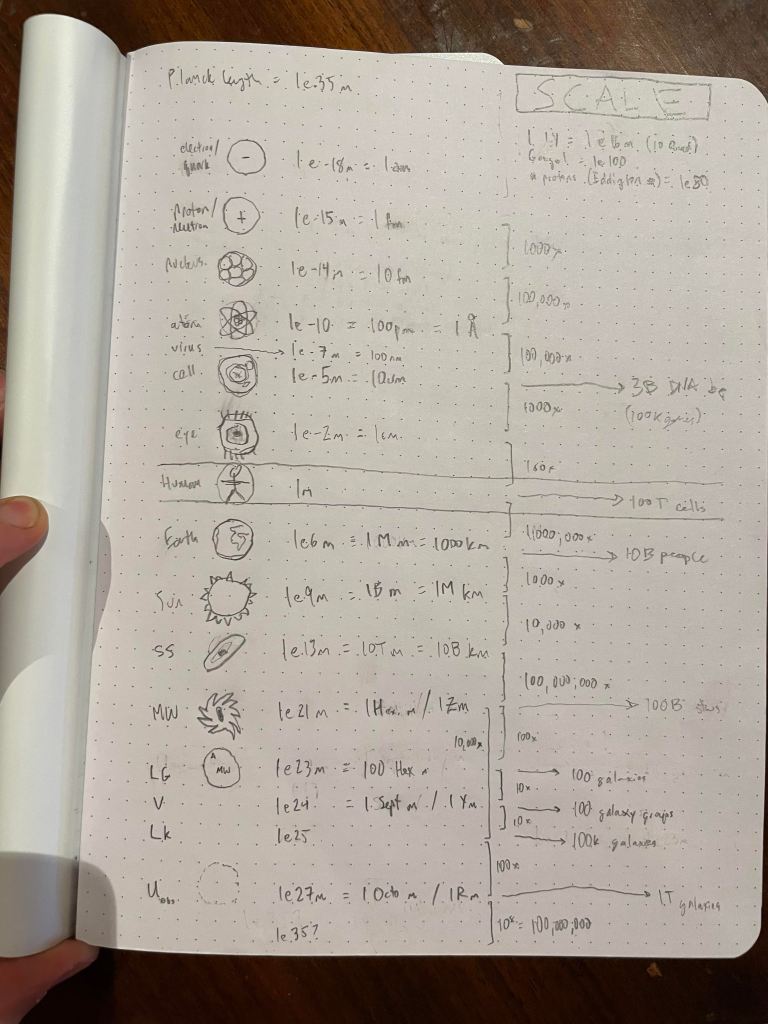 SCALE
Planck length = 1e35m
1 ly = 1e16m (10 Quad)
Googol = 1e100
# protons (Eddington #) = 1e80
electron/
quark - 1e-18m = 1am
proton/
neutron + 1e-15m = 1fm
1000x
nucleus 1e-14m = 10fm
100,000x
atom 1e-10 = 100pm = 1Å
virus → 1e-7m = 100nm
100,000x
cell 1e-5m = 10um
→ 3B DNA bp
1000x (100K genes)
eye 1e-2m = 1cm
100x
Human 1m
→ 100T cells
Earth 1e6m = 1Mm = 1000km
1,000,000x
→ 10B people
1000x
Sun 1e9m = 1Bm = 1M km
10,000x
SS 1e13m = 10Tm = 10B km
100,000,000x
MW 1e21m = 1Hex m / 1Zm
→ 100B stars
10,000x 100x
LG MW 1e23m = 100 Hex m
10x → 100 galaxies
V 1e24 = 1 Sept m / 1Ym
10x → 100 galaxy groups
Lk 1e25
→ 100k galaxies
100x
Uobs. 1e27m = 1 Octo m / 1Rm
→ 1T galaxies
1e35?
10⁸ = 100,000,000